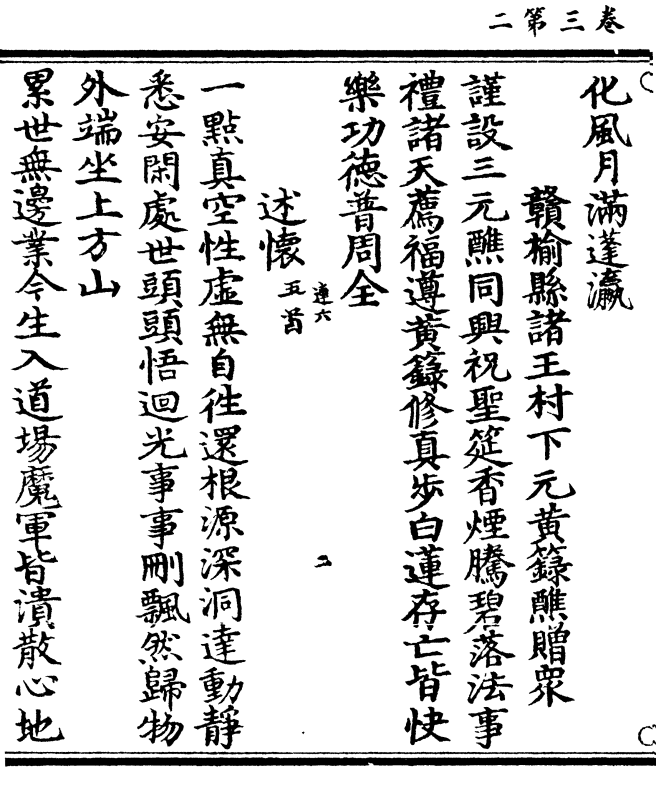 卷三第二
化風月滿蓬瀛
贛榆縣諸王村下元黃籙醮贈眾
謹設三元醮同興祝聖筵香煙騰碧落法事
禮諸天薦福遵黃籙修真步白蓮存亡皆快
樂功德普周全
述懷
連六
五首
一點真空性虛無自徃還根源深洞達動靜
悉安閑處世頭頭悟迴光事事刪飄然歸物
外端坐上方山
累世無邊業今生入道場魔軍皆潰散心地